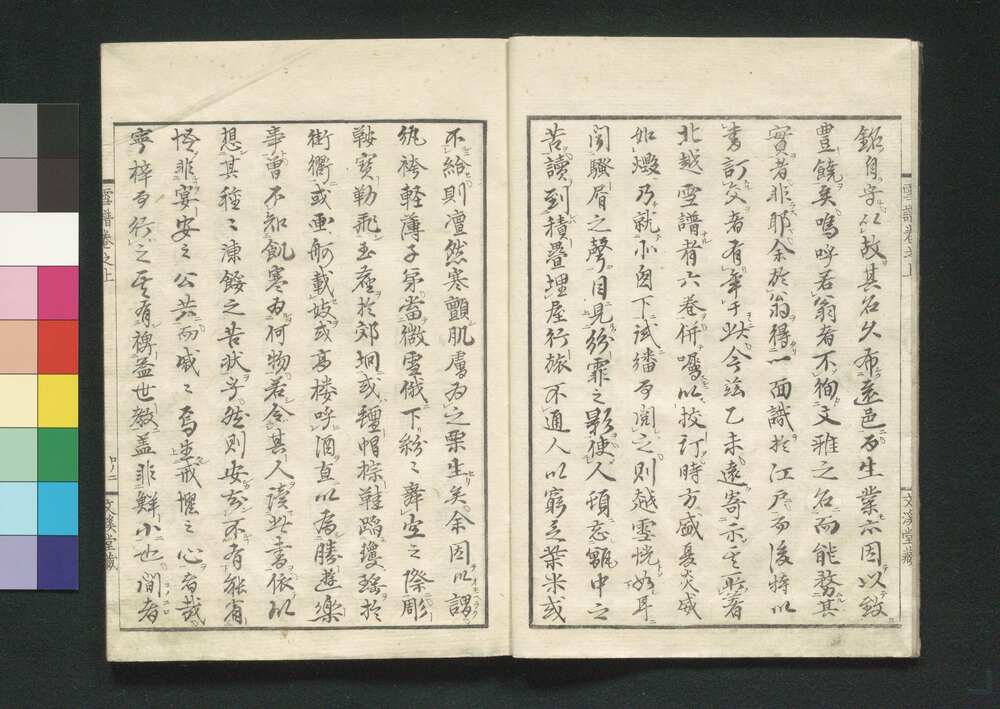 鎔自守以故其名久布遠邑而生業亦因以致
豊饒矣嗚呼若翁者不狥文雅之名而能務其
實者非耶余於翁得一面識於江戸而後特以
書訂交者有年于此今茲乙未遠寄示其所著
北越雪譜者六巻併嘱以挍訂時方盛夏炎威
如燬乃就小囱下試繙而閲之則越雪恍如耳
聞騒屑之聲目見紛霏之影使人頓忘甑中之
苦讀到積疊埋屋行旅不通人以窮乏柴米或
雪譜巻之上
文溪堂藏
不給則凜然寒顫肌膚為之栗生矣余因以謂
紈袴軽薄子弟當微雪俄下紛〻舞空之際彫
鞍寳勒飛玉塵於郊坰或氊帽棕鞋蹈瓊瑶於
街衢或画舸載妓或高楼呼酒直以為勝遊楽
事曽不知飢寒為何物若令其人讀此書依以
想其種〻凍餒之苦状乎然則安知不有能省
怪非宴安之公共而慼〻焉生戒懼之心者哉
寧梓而行之其有裨益世教盖非鮮小也間者
雪譜巻之上
口ノ二
文溪堂藏